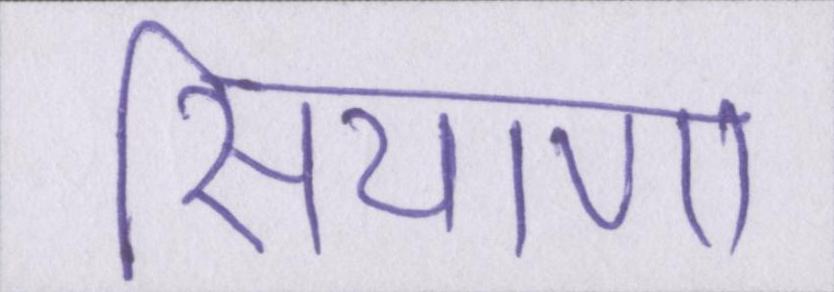 सियाणा